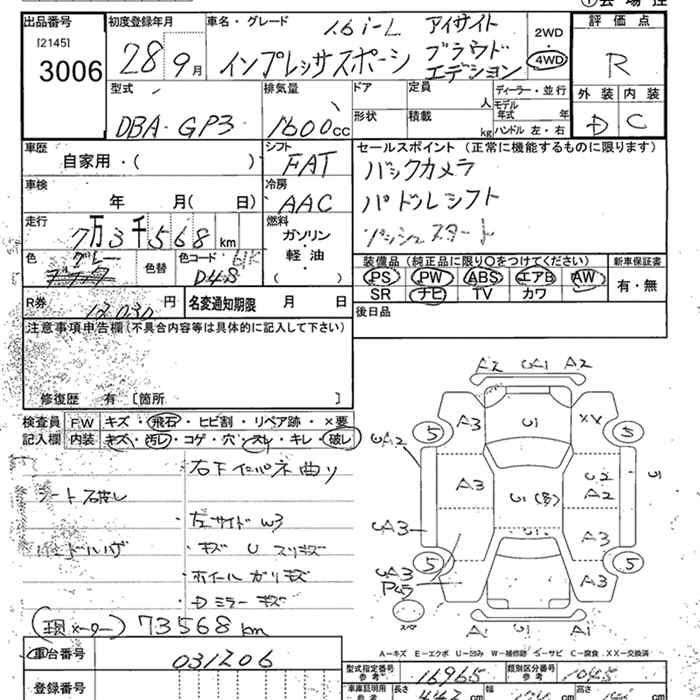 出品番号
[2145]
3006
初度登録年月
28年9月
車名・グレード
1.6i-L アイサイト
インプレッサスポーツ プラウドエデション
2WD
4WD
評価点
R
外装 内装
D C
型式
DBA-GP3
排気量
1600cc
ドア
形状
定員
人
積載
kg
ディーラー・並行
モデル年式 年
ハンドル 左・右
車歴
自家用・( )
シフト
FAT
車検
年 月( 日)
冷房
AAC
走行
7万3千568km
燃料
ガソリン・軽油・( )
色
グレー
色替
色コード 61K
D4S
R券
12,030円
名変通知期限 月 日
セールスポイント (正常に機能するものに限ります)
バックカメラ
パドルシフト
プッシュスタート
装備品 (純正品に限り○をつけてください)
PS PW ABS エアB AW
SR ナビ TV カワ
新車保証書
有・無
後日品
注意事項申告欄(不具合内容等は具体的に記入して下さい)
修復歴 有 [箇所 ]
検査員記入欄
FW キズ・飛石・ヒビ割・リペア跡・×要
内装 キズ・汚レ・コゲ・穴・スレ・キレ・破レ
右下インパネ曲り
左サイドW3
キズ U スリキズ
ホイールガリキズ
Dミラーキズ
(現メーター) 73568km
車台番号
031206
登録番号
A2 U1 A2
5 A3 U1 XX 5
UA2
A3 U1 U2 A2 5
UA3
A3
5 UA3 U1 A3 5
スペア
A1 U1 A1
A-キズ E-エクボ U-凹み W-補修跡 S-サビ C-腐食 XX-交換済
型式指定番号 参考
16965
類別区分番号 参考
1045
車庫証明用 参考
長さ 442cm
幅 cm
高さ cm